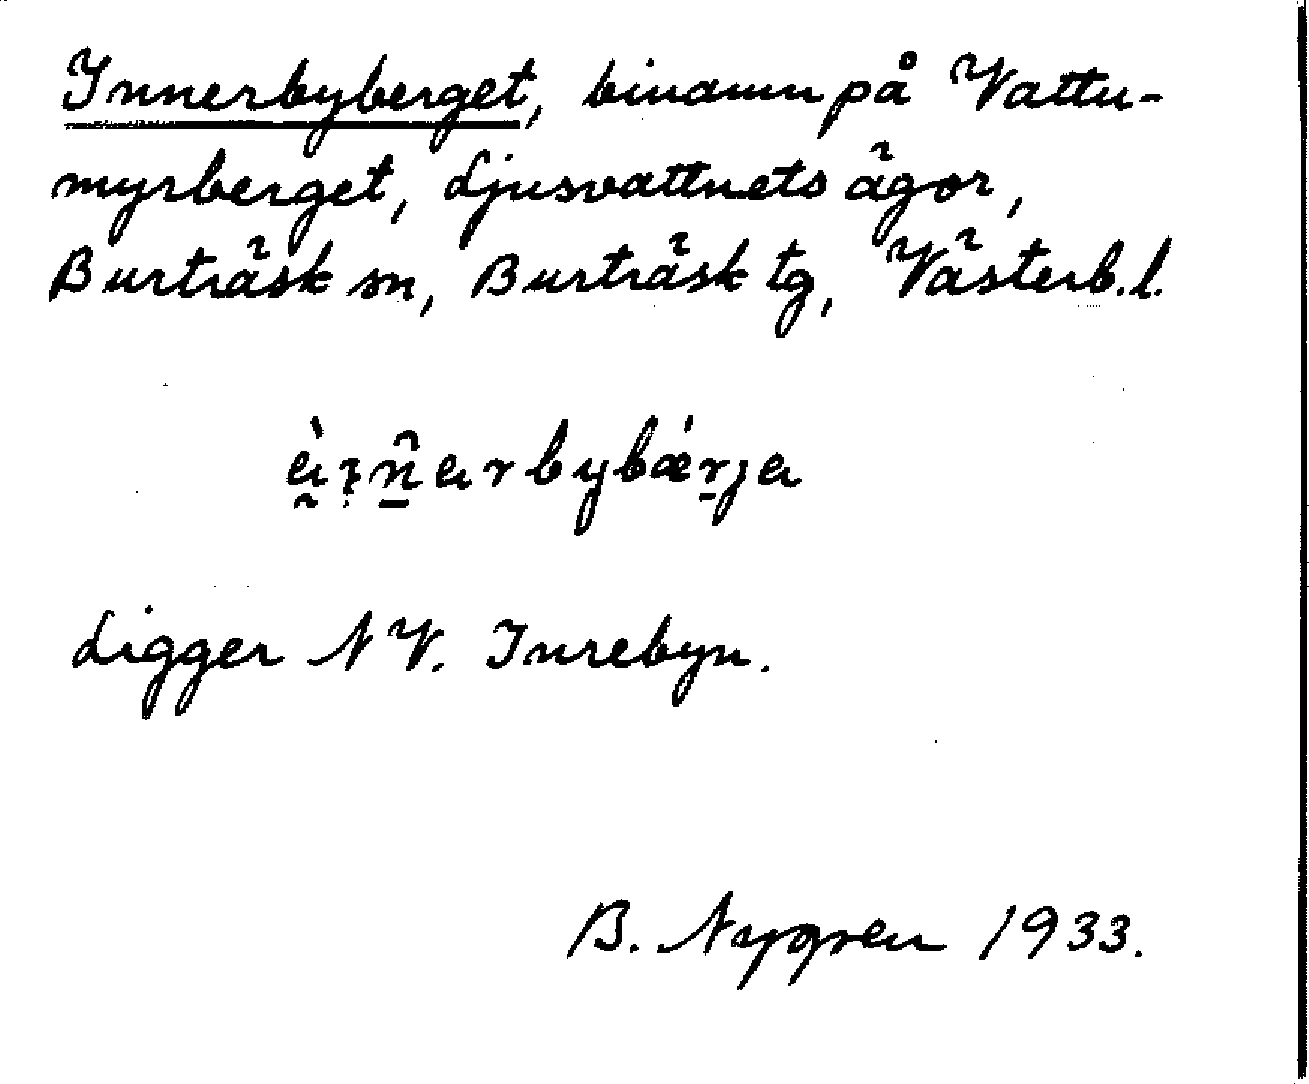 Innerbyberget, binamn på Vattu-
myrberget, Ljusvattnets ägor,
Burträsk sn, Burträsk tg, Västerb.l.
Ligger NV. Inrebyn.
B. Nygren 1933.